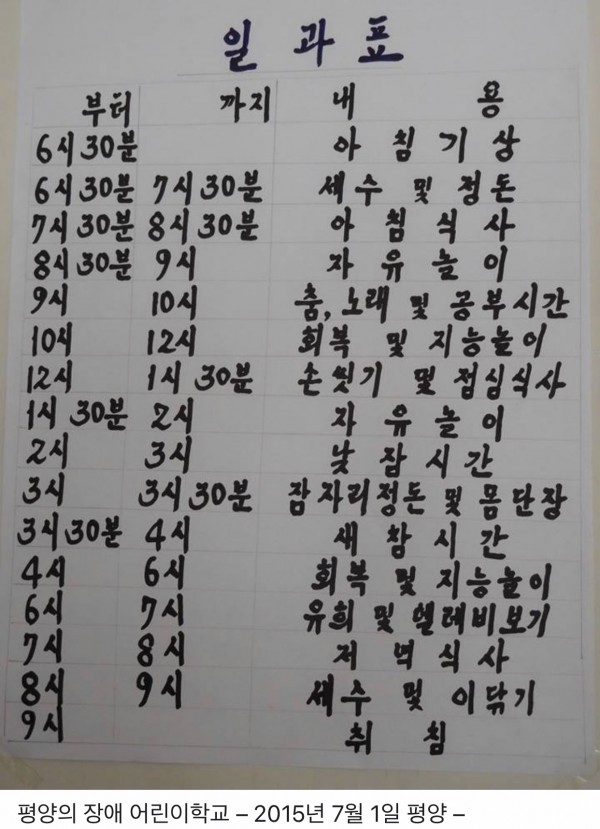 일과표
부터 까지 내용
6시 30분 아침기상
6시 30분 7시 30분 세수 및 정돈
7시 30분 8시 30분 아침식사
8시 30분 9시 자유놀이
9시 10시 춤, 노래 및 공부시간
10시 12시 회복 및 지능놀이
12시 1시 30분 손씻기 및 점심식사
1시 30분 2시 자유놀이
2시 3시 낮잠시간
3시 3시 30분 잠자리정돈 및 몸단장
3시 30분 4시 새참시간
4시 6시 회복 및 지능놀이
6시 7시 유희 및 텔레비보기
7시 8시 저녁식사
8시 9시 세수 및 이닦기
9시 취침
평양의 장애 어린이학교 – 2015년 7월 1일 평양 –